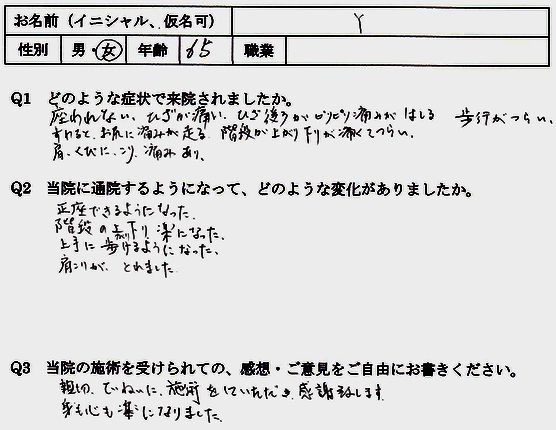 お名前（イニシャル、仮名可） Y
性別 男・女 年齢 65 職業
Q1 どのような症状で来院されましたか。
座われない、ひざが痛い、ひざ後うがビリビリ痛みがはしる 歩行がつらい、
すわると、お尻に痛みが走る 階段が上がり下りが痛くてつらい、
肩、くびに、こり、痛みあり、
Q2 当院に通院するようになって、どのような変化がありましたか。
正座できるようになった、
階段の上り下り 楽になった、
上手に歩けるようになった、
肩こりが、とれました
Q3 当院の施術を受けられての、感想・ご意見をご自由にお書きください。
親切、ていねいに、施術をしていただき、感謝致します
身も心も楽になりました